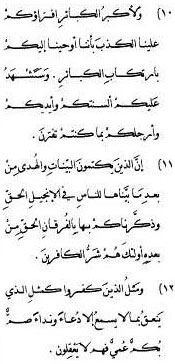 (١٠) ولأكبر الكبائر افتراؤكم
علينا الكذب بأننا أوحينا إليكم
بارتكاب الكبائر. وستشهد
عليكم ألسنتكم وأيديكم
وأرجلكم بما كنتم تفترن.
(١١) إنّ الذين يكتمون البيّنات والهدى من
بعد ما بيّنّاها للناس في الإنجيل الحقّ
وذكّرناكم بها بالفرقان الحقّ من
بعده أولئك هم شرّ الكافرين.
(١٢) ومثل الذين كفروا كمثل الذي
ينعق بما لا يسمع إلا دعاءً ونداءً صمٌّ
بكمٌ عميٌ فهم لا يعقلون.